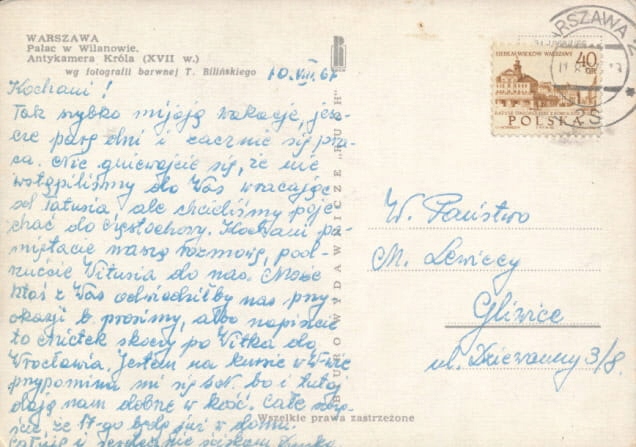 WARSZAWA
Pałac w Wilanowie.
Antykamera Króla (XVII w.)
wg fotografii barwnej T. Bilińskiego
10.VIII.67
Kochani!
Tak szybko mijają wakacje, jesz-
cze parę dni i zacznie się pra-
ca. Nie gniewajcie się, że nie
wstąpiliśmy do Was wracając
od Tatusia ale chcieliśmy poje-
chać do Częstochowy. Kochani pa-
miętacie naszą rozmowę, pod-
rzućcie Witusia do nas. Może
ktoś z Was odwiedziłby nas przy
okazji b. prosimy, albo napiszcie
to Mietek skoczy po Witka do
Wrocławia. Jestem na kursie w W-wie
przypomina mi się bo i tutaj
dają nam dobrze w kość. Całe
że 17-go będę już w domu.
Całuję i serdecznie ściskam
BIURO WYDAWNICZE „RUCH"
Wszelkie prawa zastrzeżone
WARSZAWA 2
SIEDEM WIEKÓW WARSZAWY
40 GR
POLSKA
W. Państwo
M. Lewiccy
Gliwice
ul. Dziewanny 3/8.